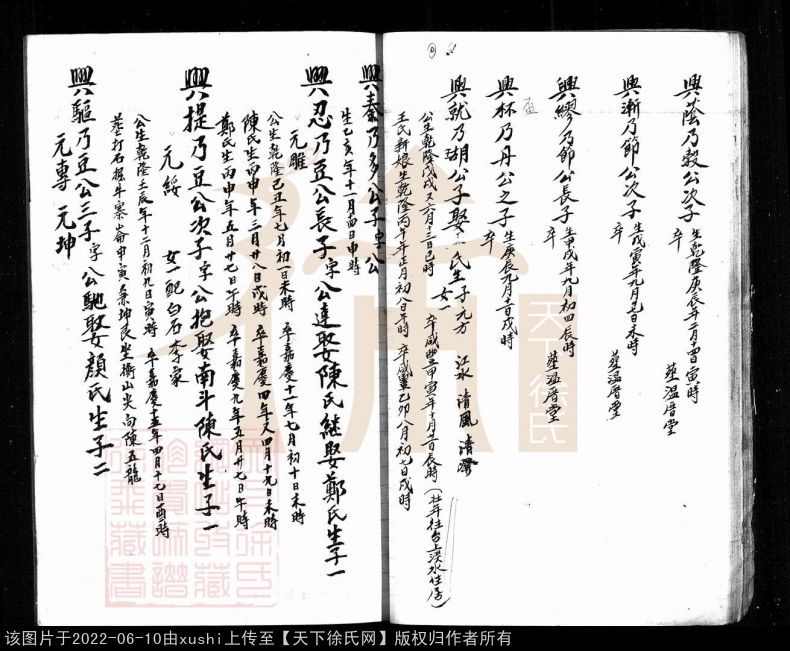 興蔭乃穀公次子 生乾隆庚辰年二月十四日寅時
卒 葬溫厝堂
興漸乃節公次子 生戊寅年九月 日未時
卒 葬溫厝堂
興繆乃節公長子 生甲戌年九月初四辰時
卒 葬溫厝堂
興杯乃丹公之子 生庚辰九月 日戌時
卒
興就乃瑚公子娶 氏生子元方 江水 清風 清
女一
公生乾隆戊戌又六月十三日巳時 卒咸豐甲寅年十月 日辰時(壯年往台上淡水住居)
王氏新娘生乾隆丙午年正月初八日午時 卒咸豐乙卯八月初七日戌時
興秦乃多公子字公
生乙亥年十一月 日申時
興忍乃豆公長子字公達娶陳氏継娶鄭氏生子一
元雕
公生乾隆己丑年七月初一日未時 卒嘉慶十一年七月初十日未時
陳氏生丙申年三月廿八日戌時 卒嘉慶四年又四月十九日未時
鄭氏生丙申年五月廿七日午時 卒嘉慶九年五月廿七日午時
興提乃豆公次子字公抱娶南斗陳氏生子一
元綏 女一配白石李家
公生乾隆壬辰年十二月初九日寅時 卒嘉慶十五年四月十七日酉時
葬打石握斗寨崙申寅兼坤艮坐衝山尖向陳五龍
興驅乃豆公三子字公馳娶顏氏生子二
元專 元坤
天下徐氏
该图片于2022-06-10由xushi上传至【天下徐氏网】版权归作者所有